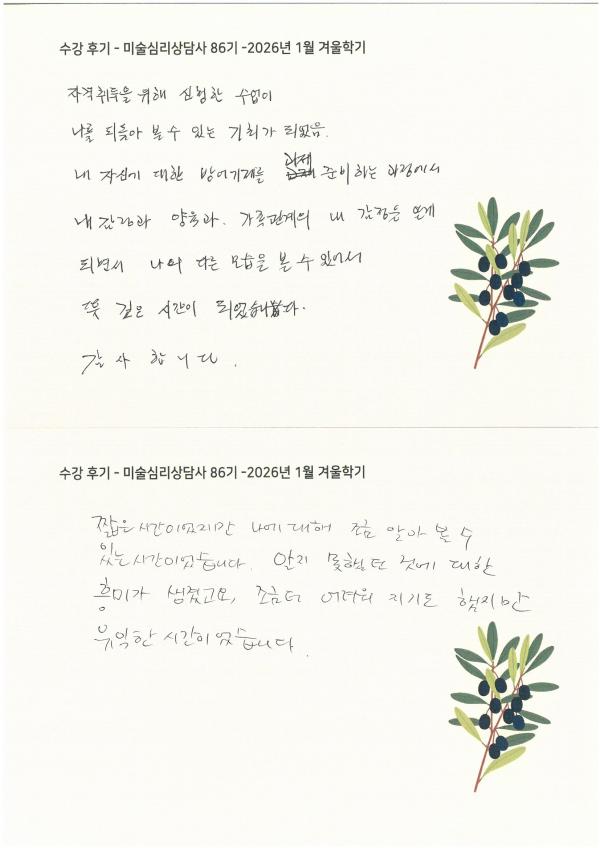 수강 후기 - 미술심리상담사 86기 -2026년 1월 겨울학기
자격취득을 위해 신청한 수업이
나를 되돌아 볼 수 있는 기회가 되었음.
내 자신에 대한 방어기제를 과제 준비하는 과정에서
내 감정과 양육과. 가족관계의 내 감정을 알게
되면서 나의 다른 모습을 볼 수 있어서
뜻 깊은 시간이 되었습니다.
감사합니다.
수강 후기 - 미술심리상담사 86기 -2026년 1월 겨울학기
짧은 시간이었지만 나에 대해 조금 알아 볼 수
있는 시간이었습니다. 알지 못했던 것에 대한
흥미가 생겼고요, 조금 더 하지만
유익한 시간이었습니다.